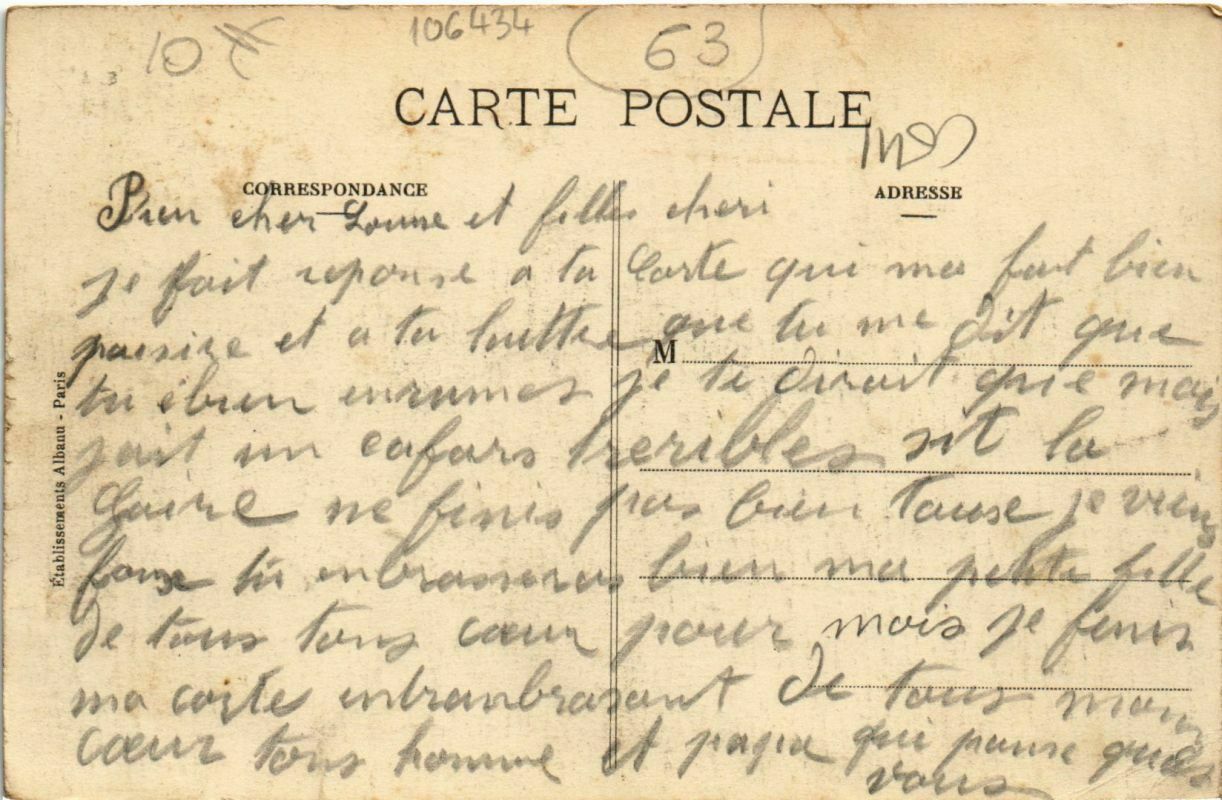 10
106434
63
CARTE POSTALE
CORRESPONDANCE
ADRESSE
Bien cher Louise et filles cheri
je fait reponse a ta Carte qui ma fait bien
plaisire et a ta lettre que tu me dit que
M
tu ébien enrumes je te dirait que mais
jait un cafars treribles sit la
Gaire ne finis pas bien touse je viens
fouse tu enbrasseras bien ma petite fille
de tous tons cœur pour mois je finis
ma carte entranbrasant de tous mon
cœur tons homme et papa qui panse qua
vous
Établissements Albanu - Paris